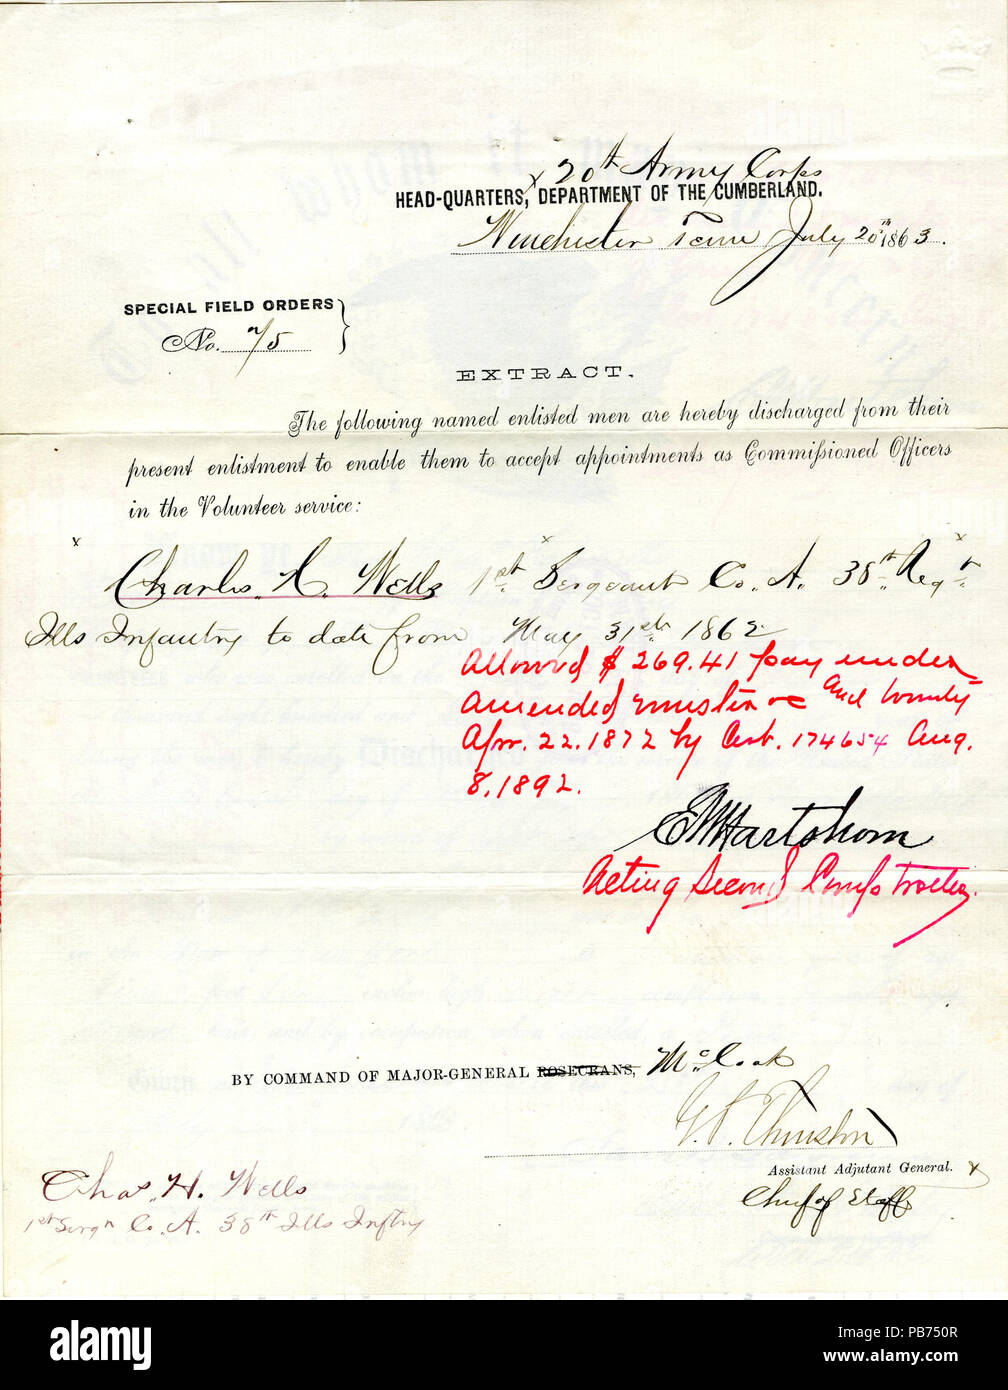 20th Army Corps
HEAD-QUARTERS, DEPARTMENT OF THE CUMBERLAND.
Winchester Tenn July 20th 1863.
SPECIAL FIELD ORDERS
No. 75
EXTRACT.
The following named enlisted men are hereby discharged from their
present enlistment to enable them to accept appointments as Commissioned Officers
in the Volunteer service:
x x x
Charles H. Wells 1st Sergeant Co. A. 38th Regt
Ills Infantry to date from May 31st 1862
Allowed $ 269.41 pay under
amended muster and bounty
Apr. 22. 1872 by Cert. 174654 Aug.
8, 1892.
E M Hartshorn
Acting Second Comptroller.
BY COMMAND OF MAJOR-GENERAL ROSECRANS, McCook
Assistant Adjutant General. x
Chief of Staff
Chas. H. Wells
1st Sergn Co. A. 38th Ills Inftry
alamy
Image ID: PB750R
www.alamy.com